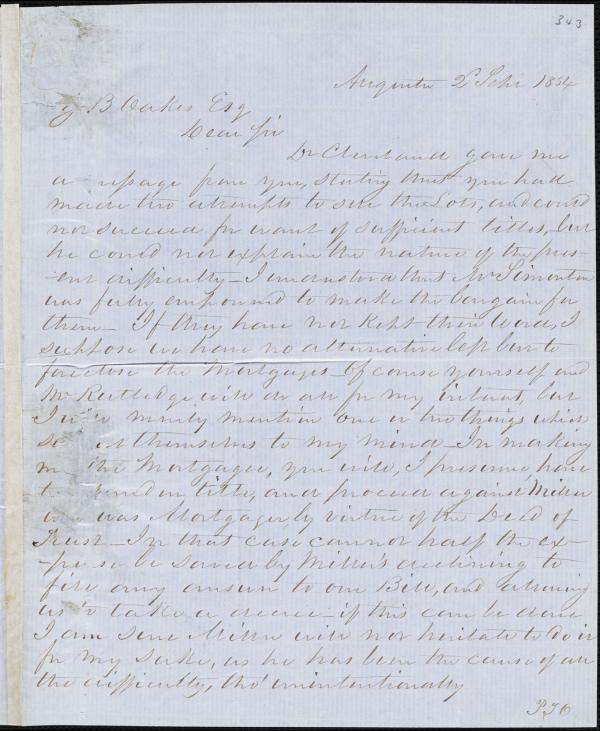 343
Augusta 2d Septr 1854
Z B Oakes Esq
Dear Sir
Dr Cleveland gave me
a message from you, stating that you had
made two attempts to see the Lots, and could
not succeed for want of sufficient titles, but
he could not explain the nature of the pres-
-ent difficulty - I understood that Mr Simonton
was fully empowered to make the bargain for
them - If they have not kept their word, I
suppose we have no alternative left but to
foreclose the Mortgages. Of course yourself and
Mr Rutledge will do all for my interest, but
I merely mention one or two things which
themselves to my mind - In making
the Mortgagee, you will, I presume have
title, and proceed against Miller
was Mortgager, by virtue of the Deed of
Trust - In that case cannot half the ex-
be saved by Miller's declining to
file any answer to our Bill, and allowing
us to take a decree - if this can be done
I am sure Miller will not hesitate to do it
for my sake, as he has been the cause of all
the difficulty, tho' unintentionally
P.T.O